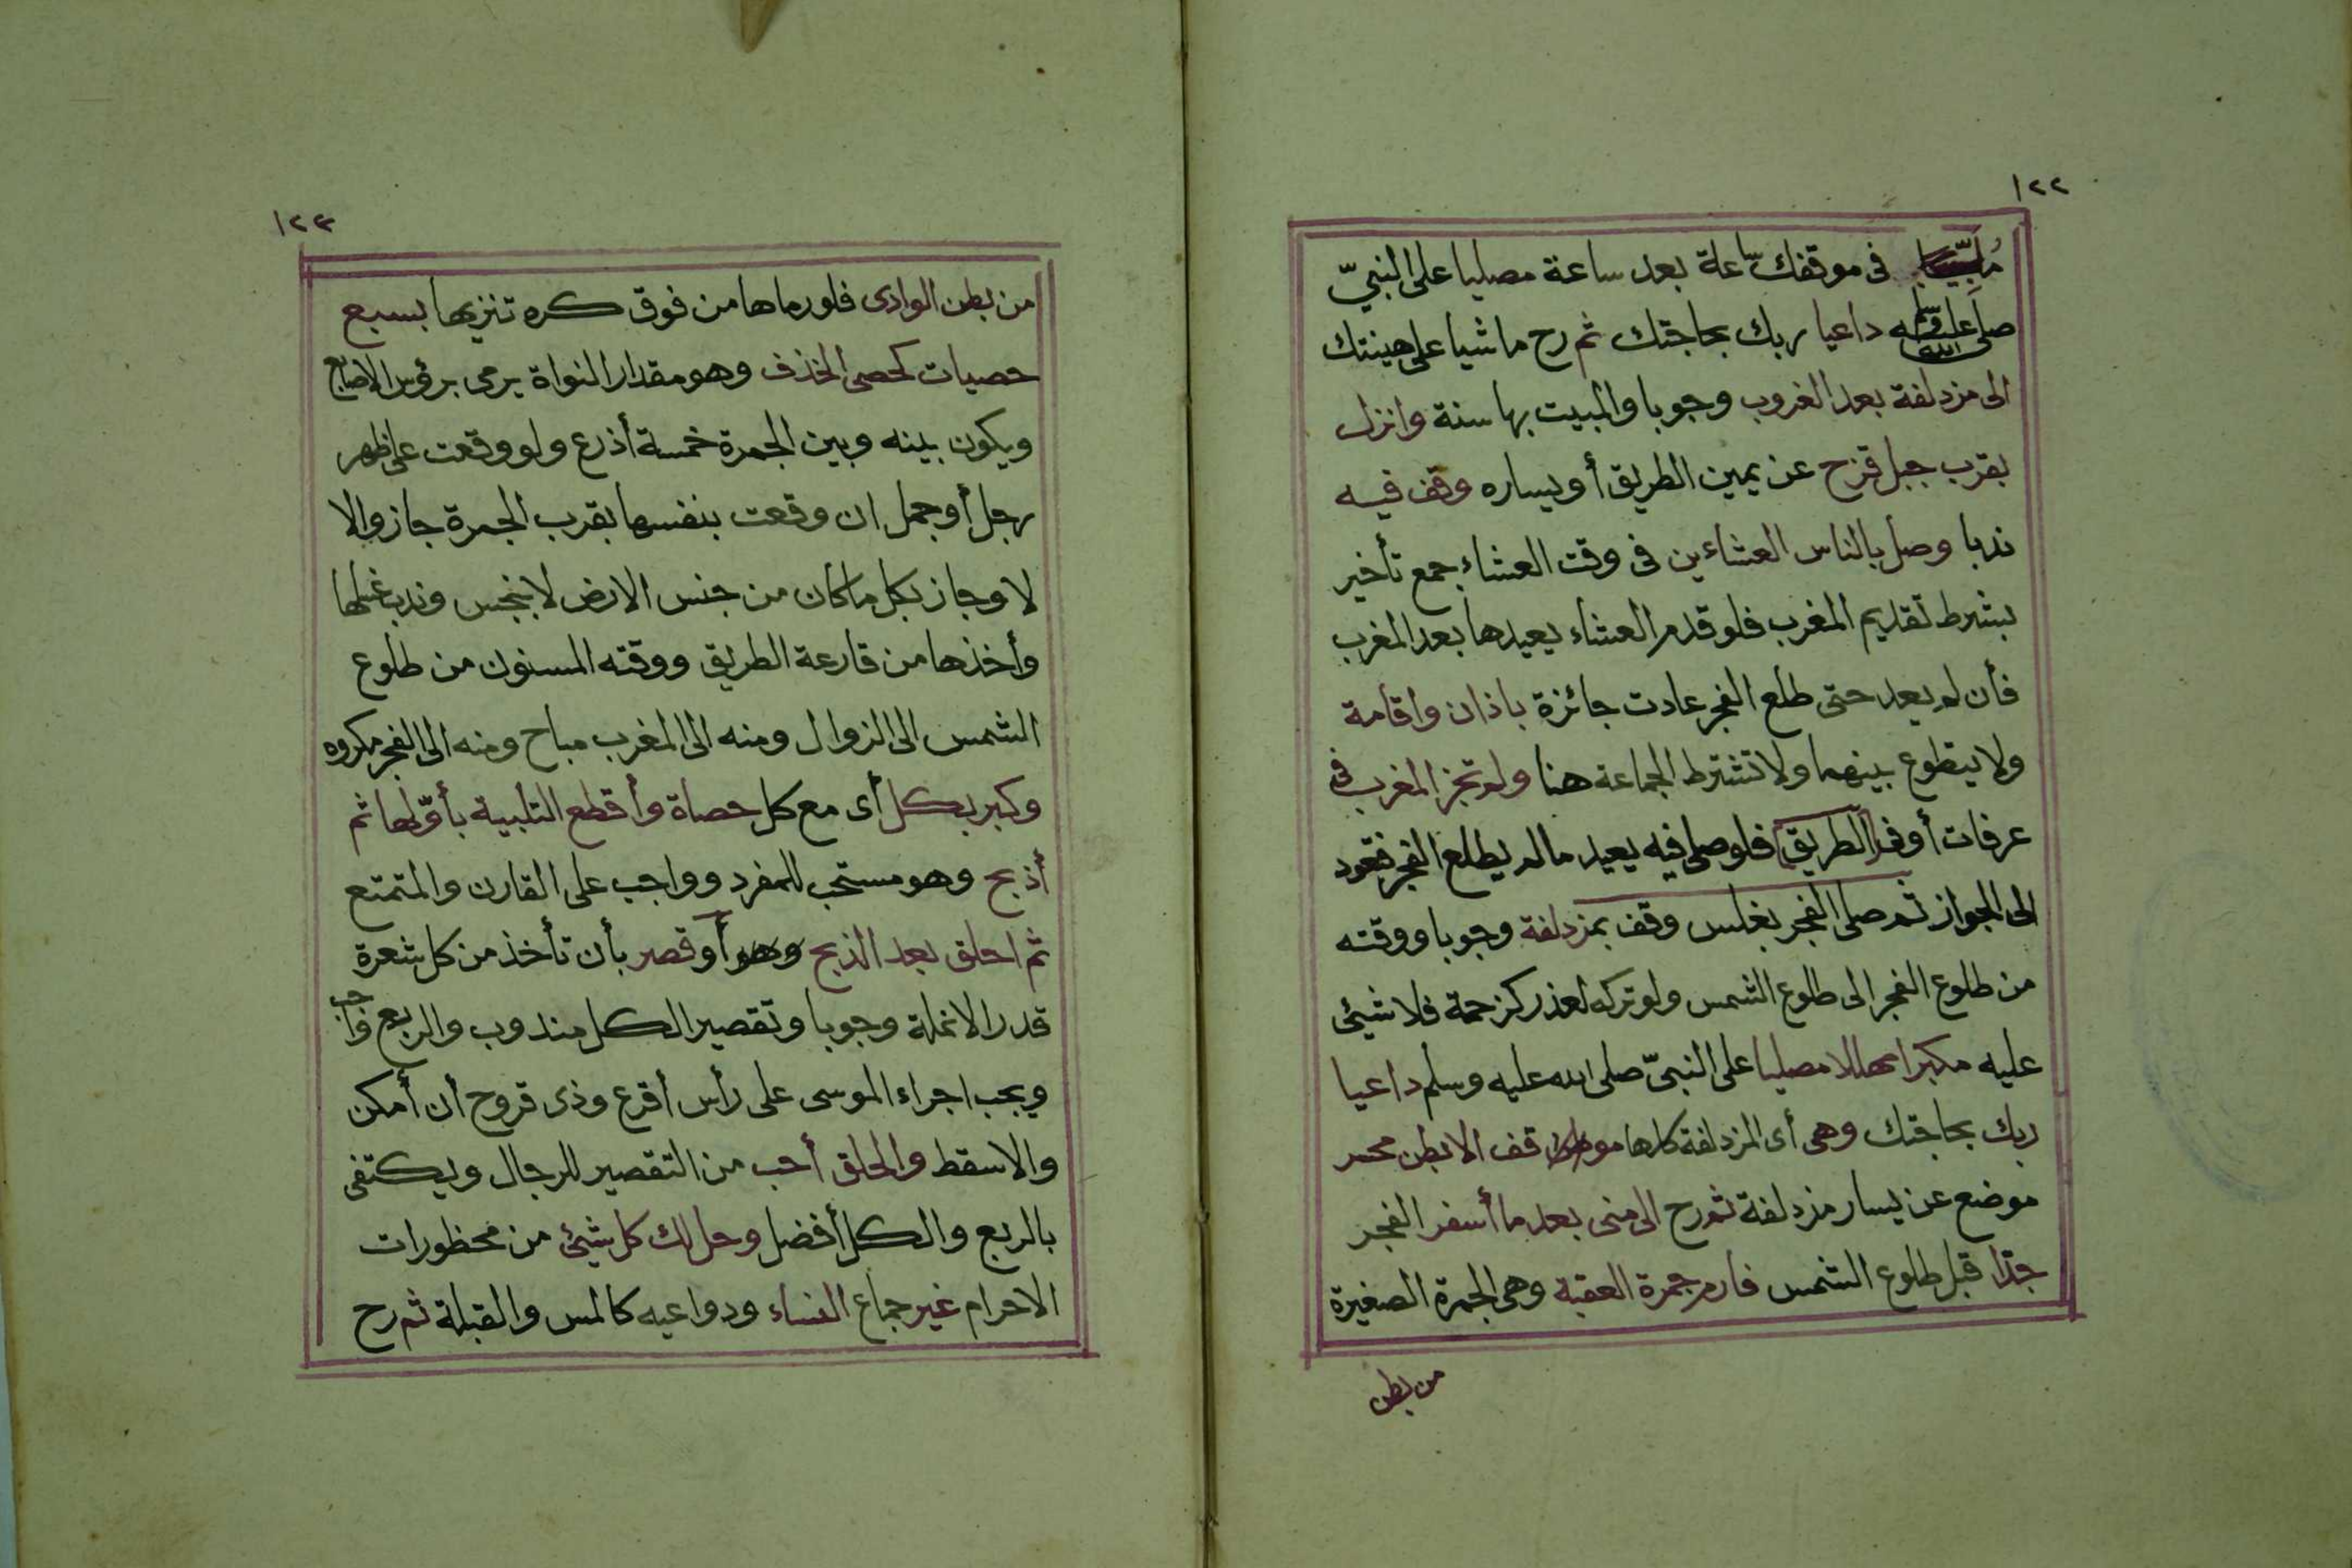 ١٢٢
ملبيا فى موقفك ساعة بعد ساعة مصليا على النبىّ
صلى الله عليه وسلم داعيا ربك بحاجتك ثم رح ماشيا على هينتك
الى مزدلفة بعد الغروب وجوبا والمبيت بها سنة وانزل
بقرب جبل قزح عن يمين الطريق أو يساره وقف فيه
ندبا وصل بالناس العشاءين فى وقت العشاء جمع تأخير
بشرط تقديم المغرب فلو قدم العشاء يعيدها بعد المغرب
فأن لم يعد حتى طلع الفجر عادت جائزة باذان واقامة
ولا يتطوع بينهما ولا تشترط الجماعة هنا ولم تجز المغرب فى
عرفات أو فى الطريق فلو صلى فيه يعيد مالم يطلع الفجر فتعود
الى الجواز ثم صلى الفجر بغلس وقف بمزدلفة وجوبا ووقته
من طلوع الفجر الى طلوع الشمس ولو تركه لعذر كزحمة فلا شيئ
عليه مكبرا مهللا مصليا على النبىّ صلى الله عليه وسلم داعيا
ربك بحاجتك وهى أى المزدلفة كلها موقف الا بطن محسر
موضع عن يسار مزدلفة ثم رح الى منى بعد ما أسفر الفجر
جدّا قبل طلوع الشمس فارم جمرة العقبة وهى الجمرة الصغيرة
من بطن
١٢٣
من بطن الوادى فلو رماها من فوق كره تنزيها بسبع
حصيات كحصى الخذف وهو مقدار النواة يرمى برؤس الاصابع
ويكون بينه وبين الجمرة خمسة أذرع ولو وقعت على ظهر
رجل أو جمل ان وقعت بنفسها بقرب الجمرة جاز والا
لا وجاز بكل ما كان من جنس الارض لا بنجس وندب غسلها
وأخذها من قارعة الطريق ووقته المسنون من طلوع
الشمس الى الزوال ومنه الى المغرب مباح ومنه الى الفجر مكروه
وكبر بكل أى مع كل حصاة وأقطع التلبية بأوّلها ثم
أذبح وهو مستحب للمفرد وواجب على القارن والمتمتع
ثم احلق بعد الذبح وهو أو قصر بأن تأخذ من كل شعرة
قدر الانملة وجوبا وتقصير الكل مندوب والربع واجب
ويجب اجراء الموسى على رأس أقرع وذى قروح أن أمكن
والا سقط والحلق أحب من التقصير للرجال ويكتفى
بالربع والكل أفضل وحل لك كل شيئ من محظورات
الاحرام غير جماع النساء ودواعيه كالمس والقبلة ثم رح